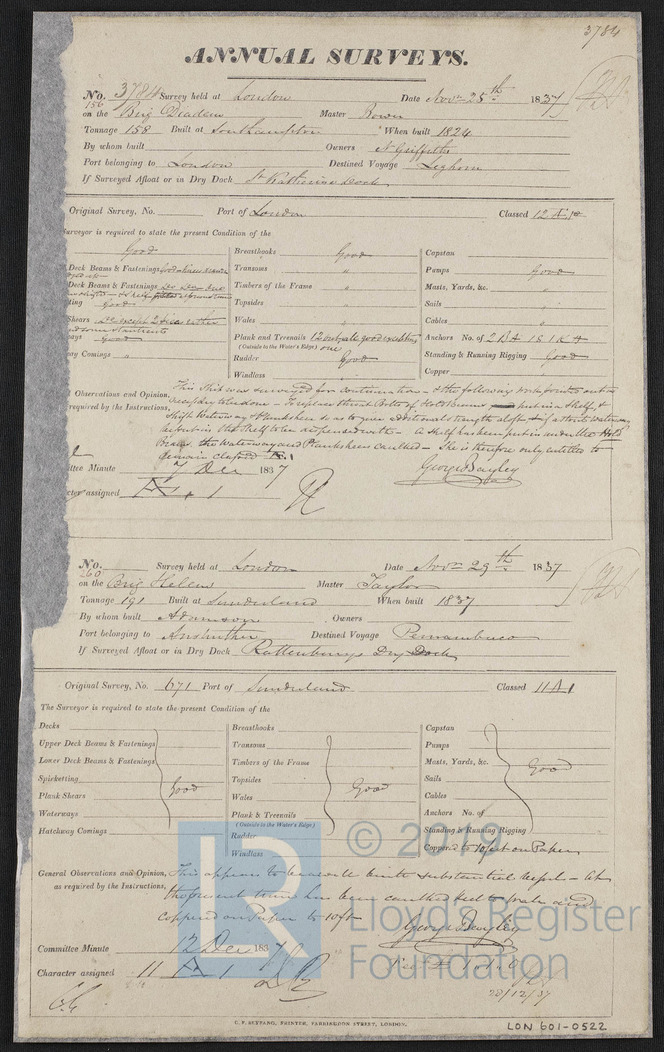 3784
ANNUAL SURVEYS.
No. 3784 Survey held at London Date Novr 25th 1837
156
on the Brig Diadem Master Bowen
Tonnage 158 Built at Southampton When built 1824
By whom built Owners N Griffiths
Port belonging to London Destined Voyage Leghorn
If Surveyed Afloat or in Dry Dock St Katherine Dock
Original Survey, No. Port of London Classed 12 A 1
urveyor is required to state the present Condition of the
Good
Deck Beams & Fastenings
Deck Beams & Fastenings
ting Good
Shears
ays Good
ay Comings "
Breasthooks Good
Transoms "
Timbers of the Frame "
Topsides "
Wales "
Plank and Treenails 12 outside good excepting
(Outside to the Water's Edge) one
Rudder Good
Windlass "
Capstan
Pumps Good
Masts, Yards, &c. "
Sails "
Cables "
Anchors No. of 2 BA 1 S 1 K A
Standing & Running Rigging Good
Copper
Observations and Opinion, This Ship was surveyed for continuation - & the following work pointed out as
required by the Instructions, necessary to be done - To replace the Bolts of Hold Beams put in a Shelf, &
Shift Waterway & Planksheer so as to give additional strength aloft, & if a stout Waterway
be put in the Shelf to be dispensed with - a Shelf has been put in under the Hold
Beams, the Waterway and Plankshears caulked - She is therefore only entitled to
remain classed Æ 1
George Bayley
ttee Minute 7 Dec 1837
cter assigned Æ . 1
No. Survey held at London Date Novr 29th 1837
260
on the Brig Hellen Master Taylor
Tonnage 191 Built at Sunderland When built 1837
By whom built Adamson Owners
Port belonging to Anstruther Destined Voyage Pernambuco
If Surveyed Afloat or in Dry Dock Rattenburys Dry Dock
Original Survey, No. 671 Port of Sunderland Classed 11 A 1
The Surveyor is required to state the present Condition of the
Decks
Upper Deck Beams & Fastenings
Lower Deck Beams & Fastenings
Spirketting
Plank Shears Good
Waterways
Hatchway Comings
Breasthooks
Transoms
Timbers of the Frame
Topsides Good
Wales
Plank & Treenails
(Outside to the Water's Edge.)
Rudder
Windlass
Capstan
Pumps
Masts, Yards, &c. Good
Sails
Cables
Anchors No. of
Standing & Running Rigging
Coppered to 10 feet on Paper
General Observations and Opinion, This appears to be a well built substantial Vessel - At
as required by the Instructions, the present time has been caulked keel to wale and
coppered on Paper to 10 ft
George Bayley
Committee Minute 12 Dec 1837
Character assigned 11 A 1
20/12/37
LON 601-0522
© 2019
LR
Lloyd's Register
Foundation